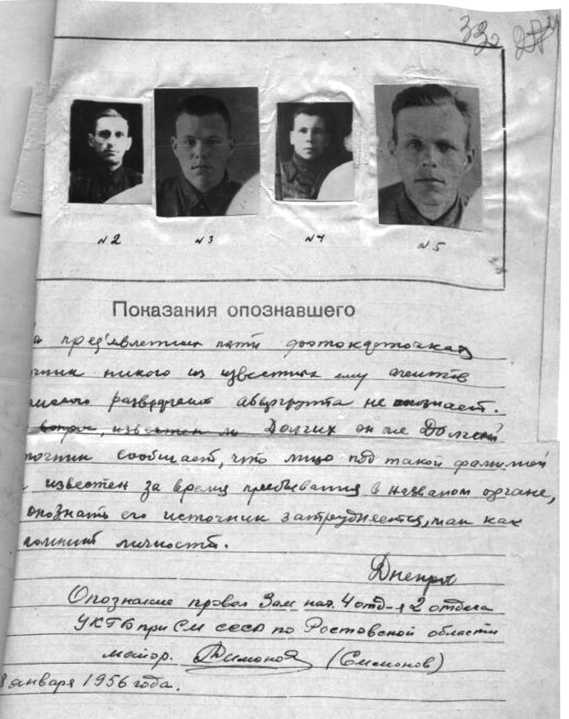 33
№2 №3 №4 №5
Показания опознавшего
предъявленных пяти фотокарточках
никого из известных ему агентов
абвергруппа не опознает.
известен ли Долгих он же Долгий
сообщает, что лицо под такой фамилией
известен за время пребывания в названом органе,
опознать его источник затрудняется, так как
личность.
Днепр
Опознание провел Зам нач. 4 отд-я 2 отдела
УКГБ при СМ СССР по Ростовской области
майор. (Симонов)
января 1956 года.